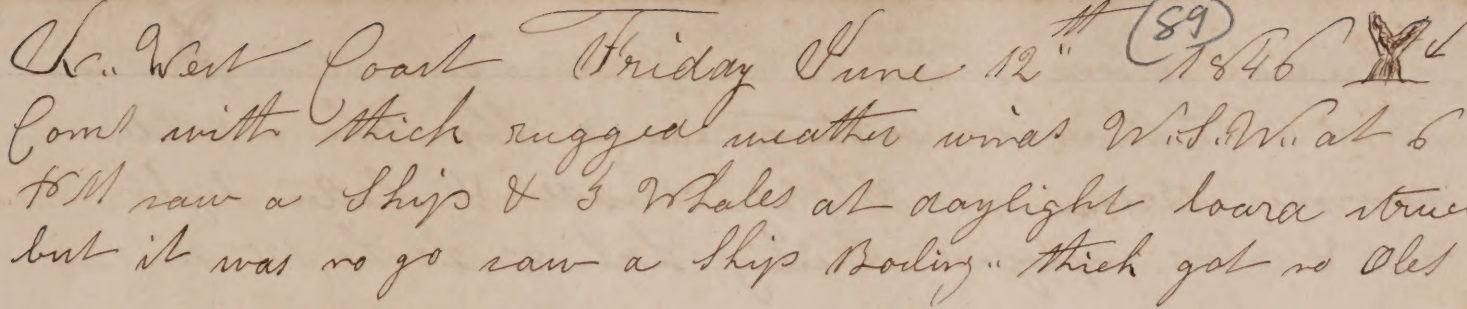 N.. West Coast Friday June 12th 1846 (89)
Coms with thick rugged weather winds W.S.W. at 6
PM saw a Ship & 3 Whales at daylight loard struc
but it was no go saw a Ship Boiling.. thick got no Obs